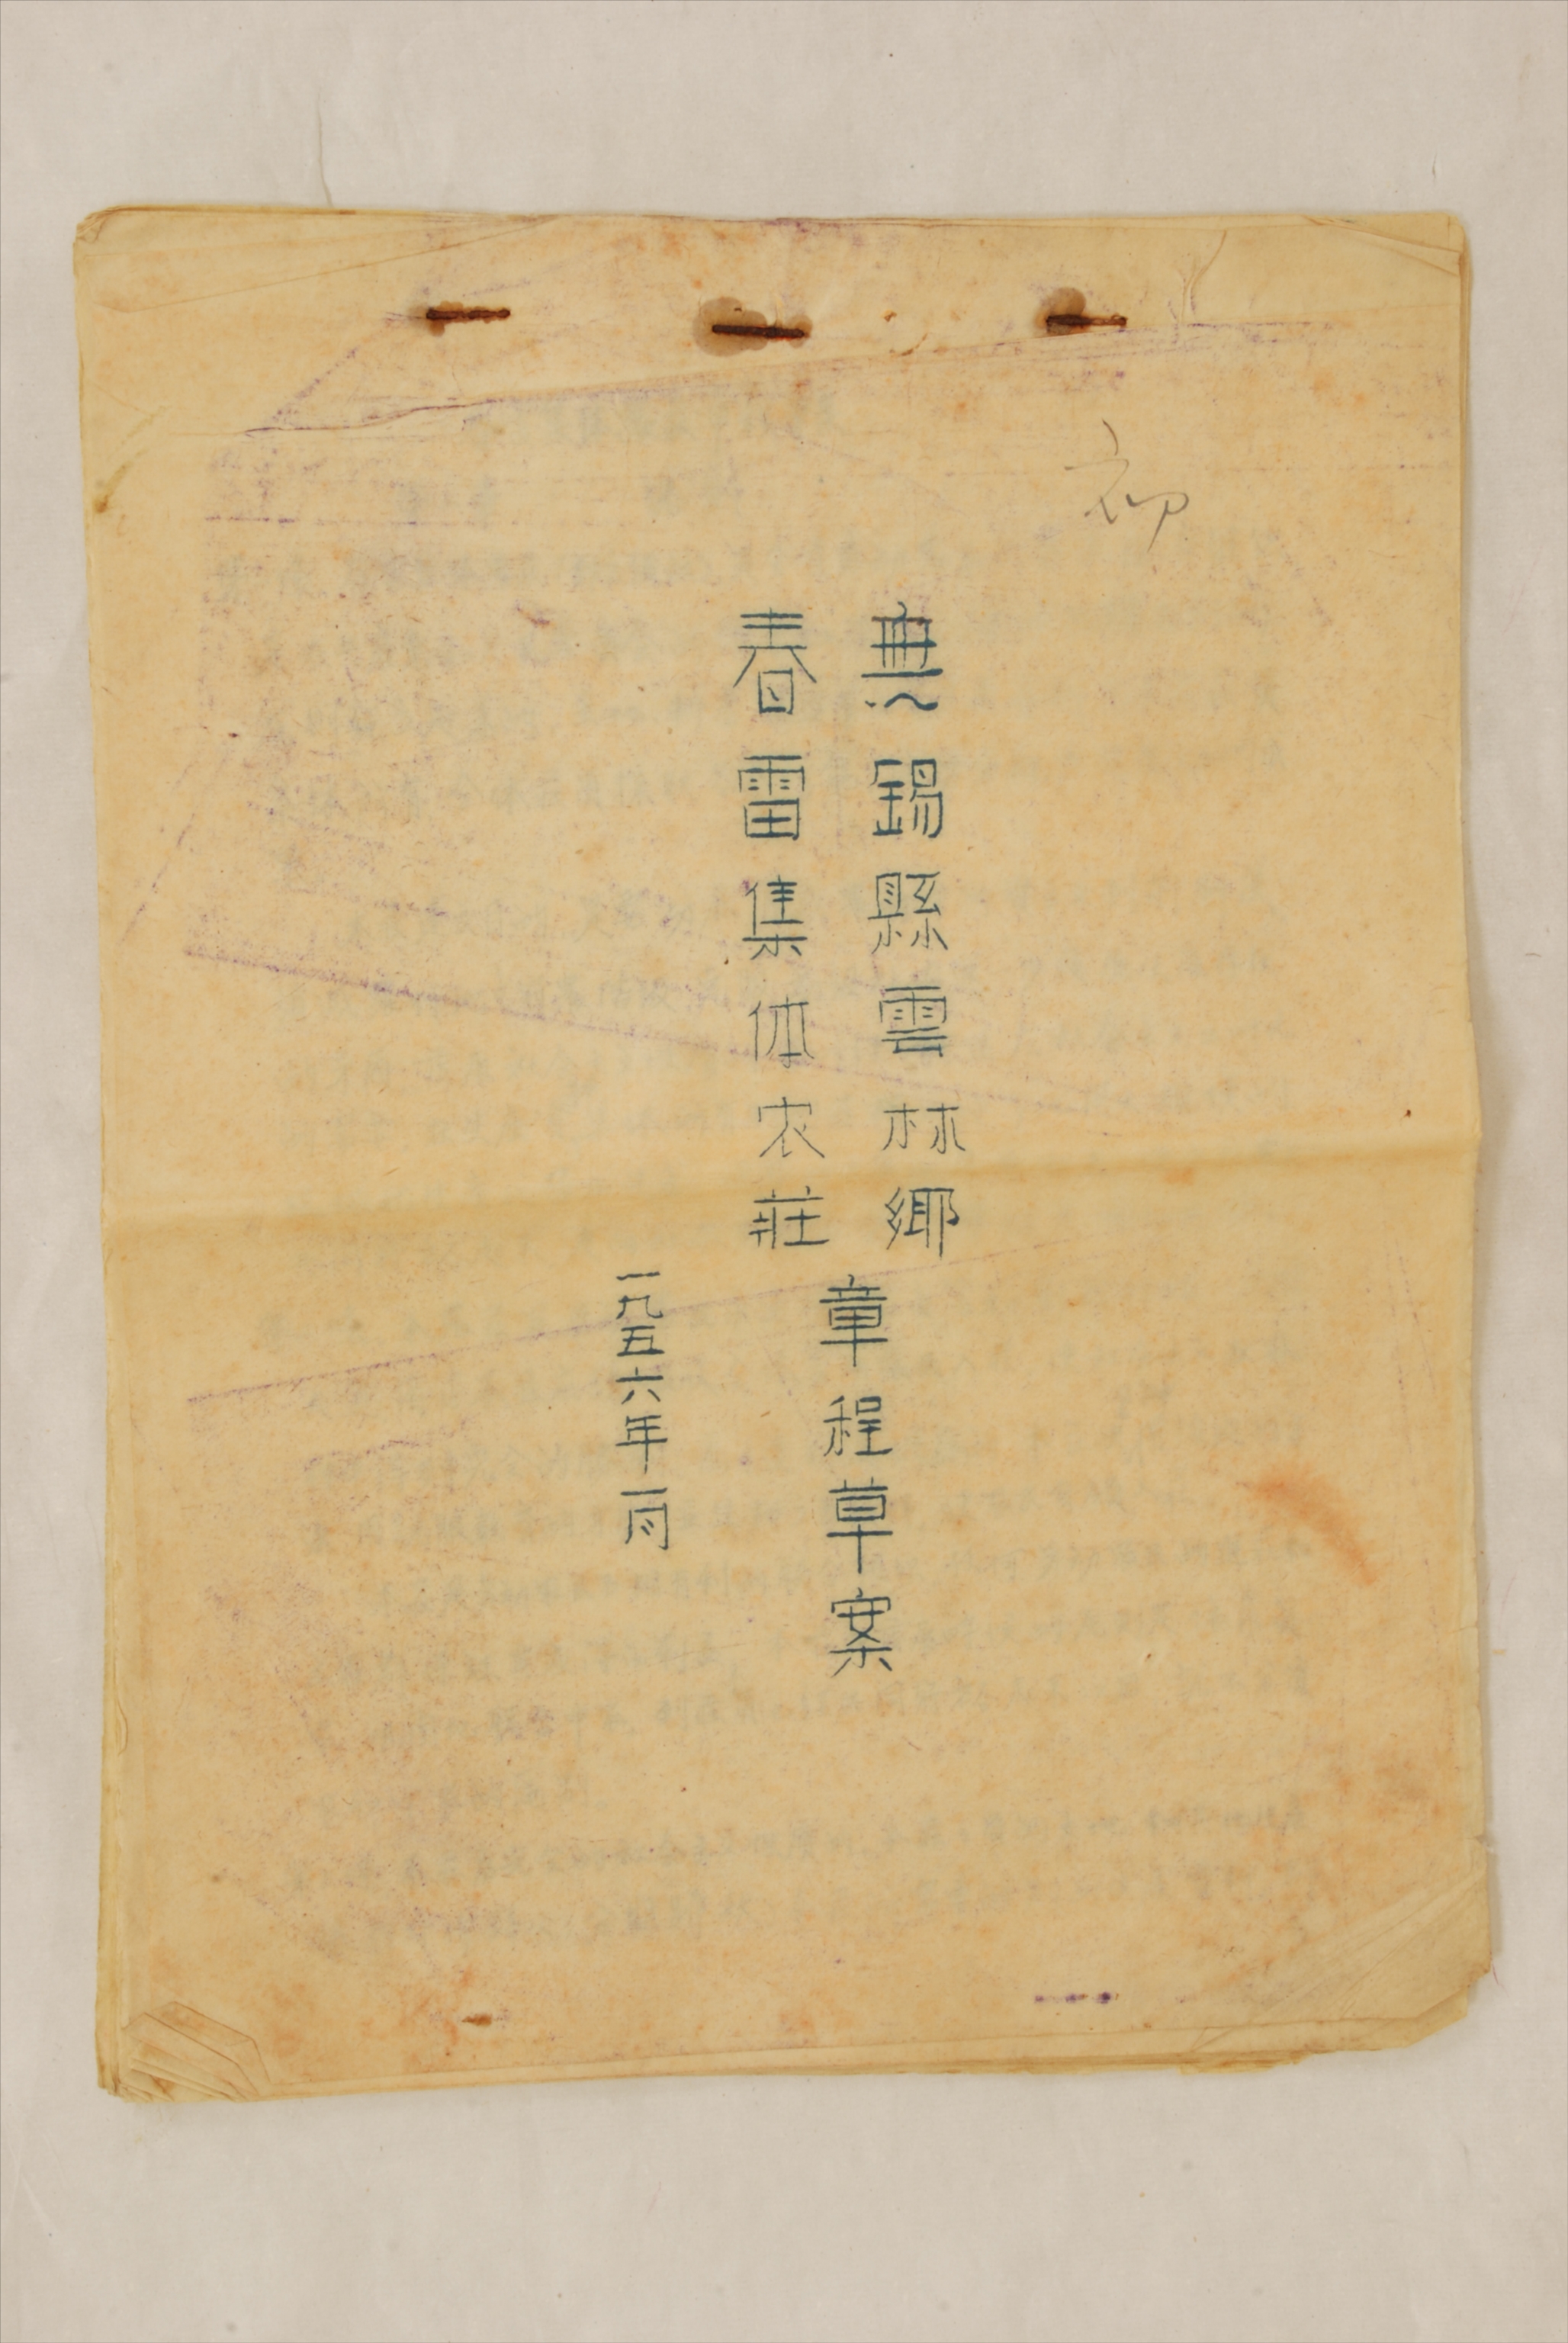 無錫縣雲林鄉
春雷集体农莊
章程草案
一九五六年一月